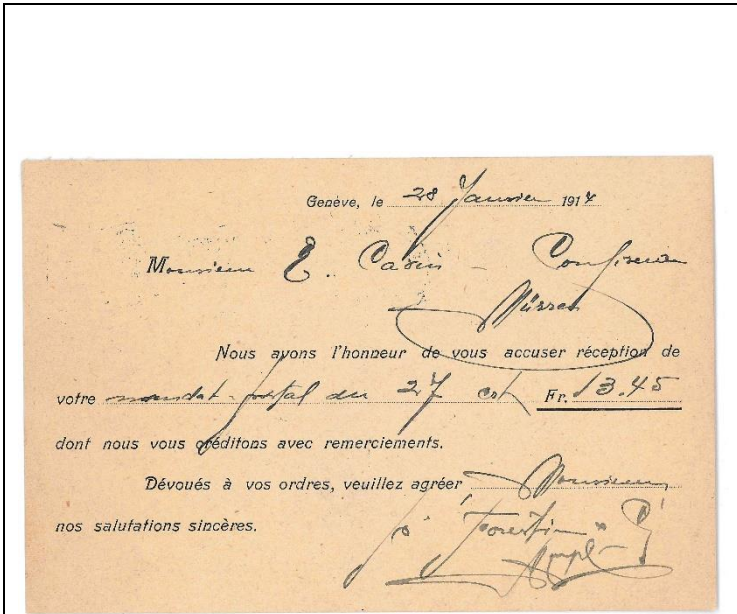 Genève, le 28 Janvier 1914
Monsieur E. Cavin - Confiseur
Nous avons l'honneur de vous accuser réception de
votre mandat-postal du 27 ct Fr. 13.45
dont nous vous créditons avec remerciements.
Dévoués à vos ordres, veuillez agréer Monsieur
nos salutations sincères.